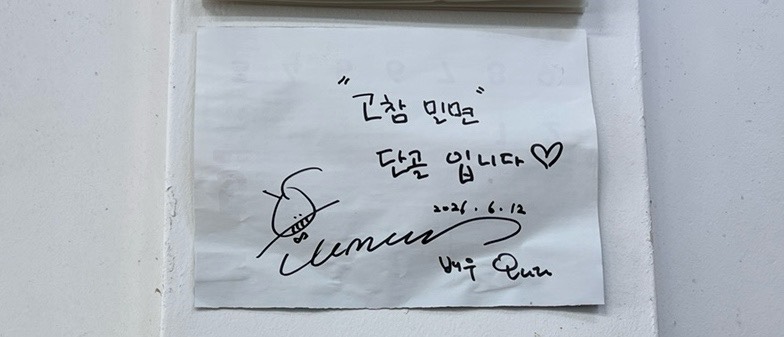 "고참 밀면"
단골 입니다♡
2026.6.12
배우 오나라